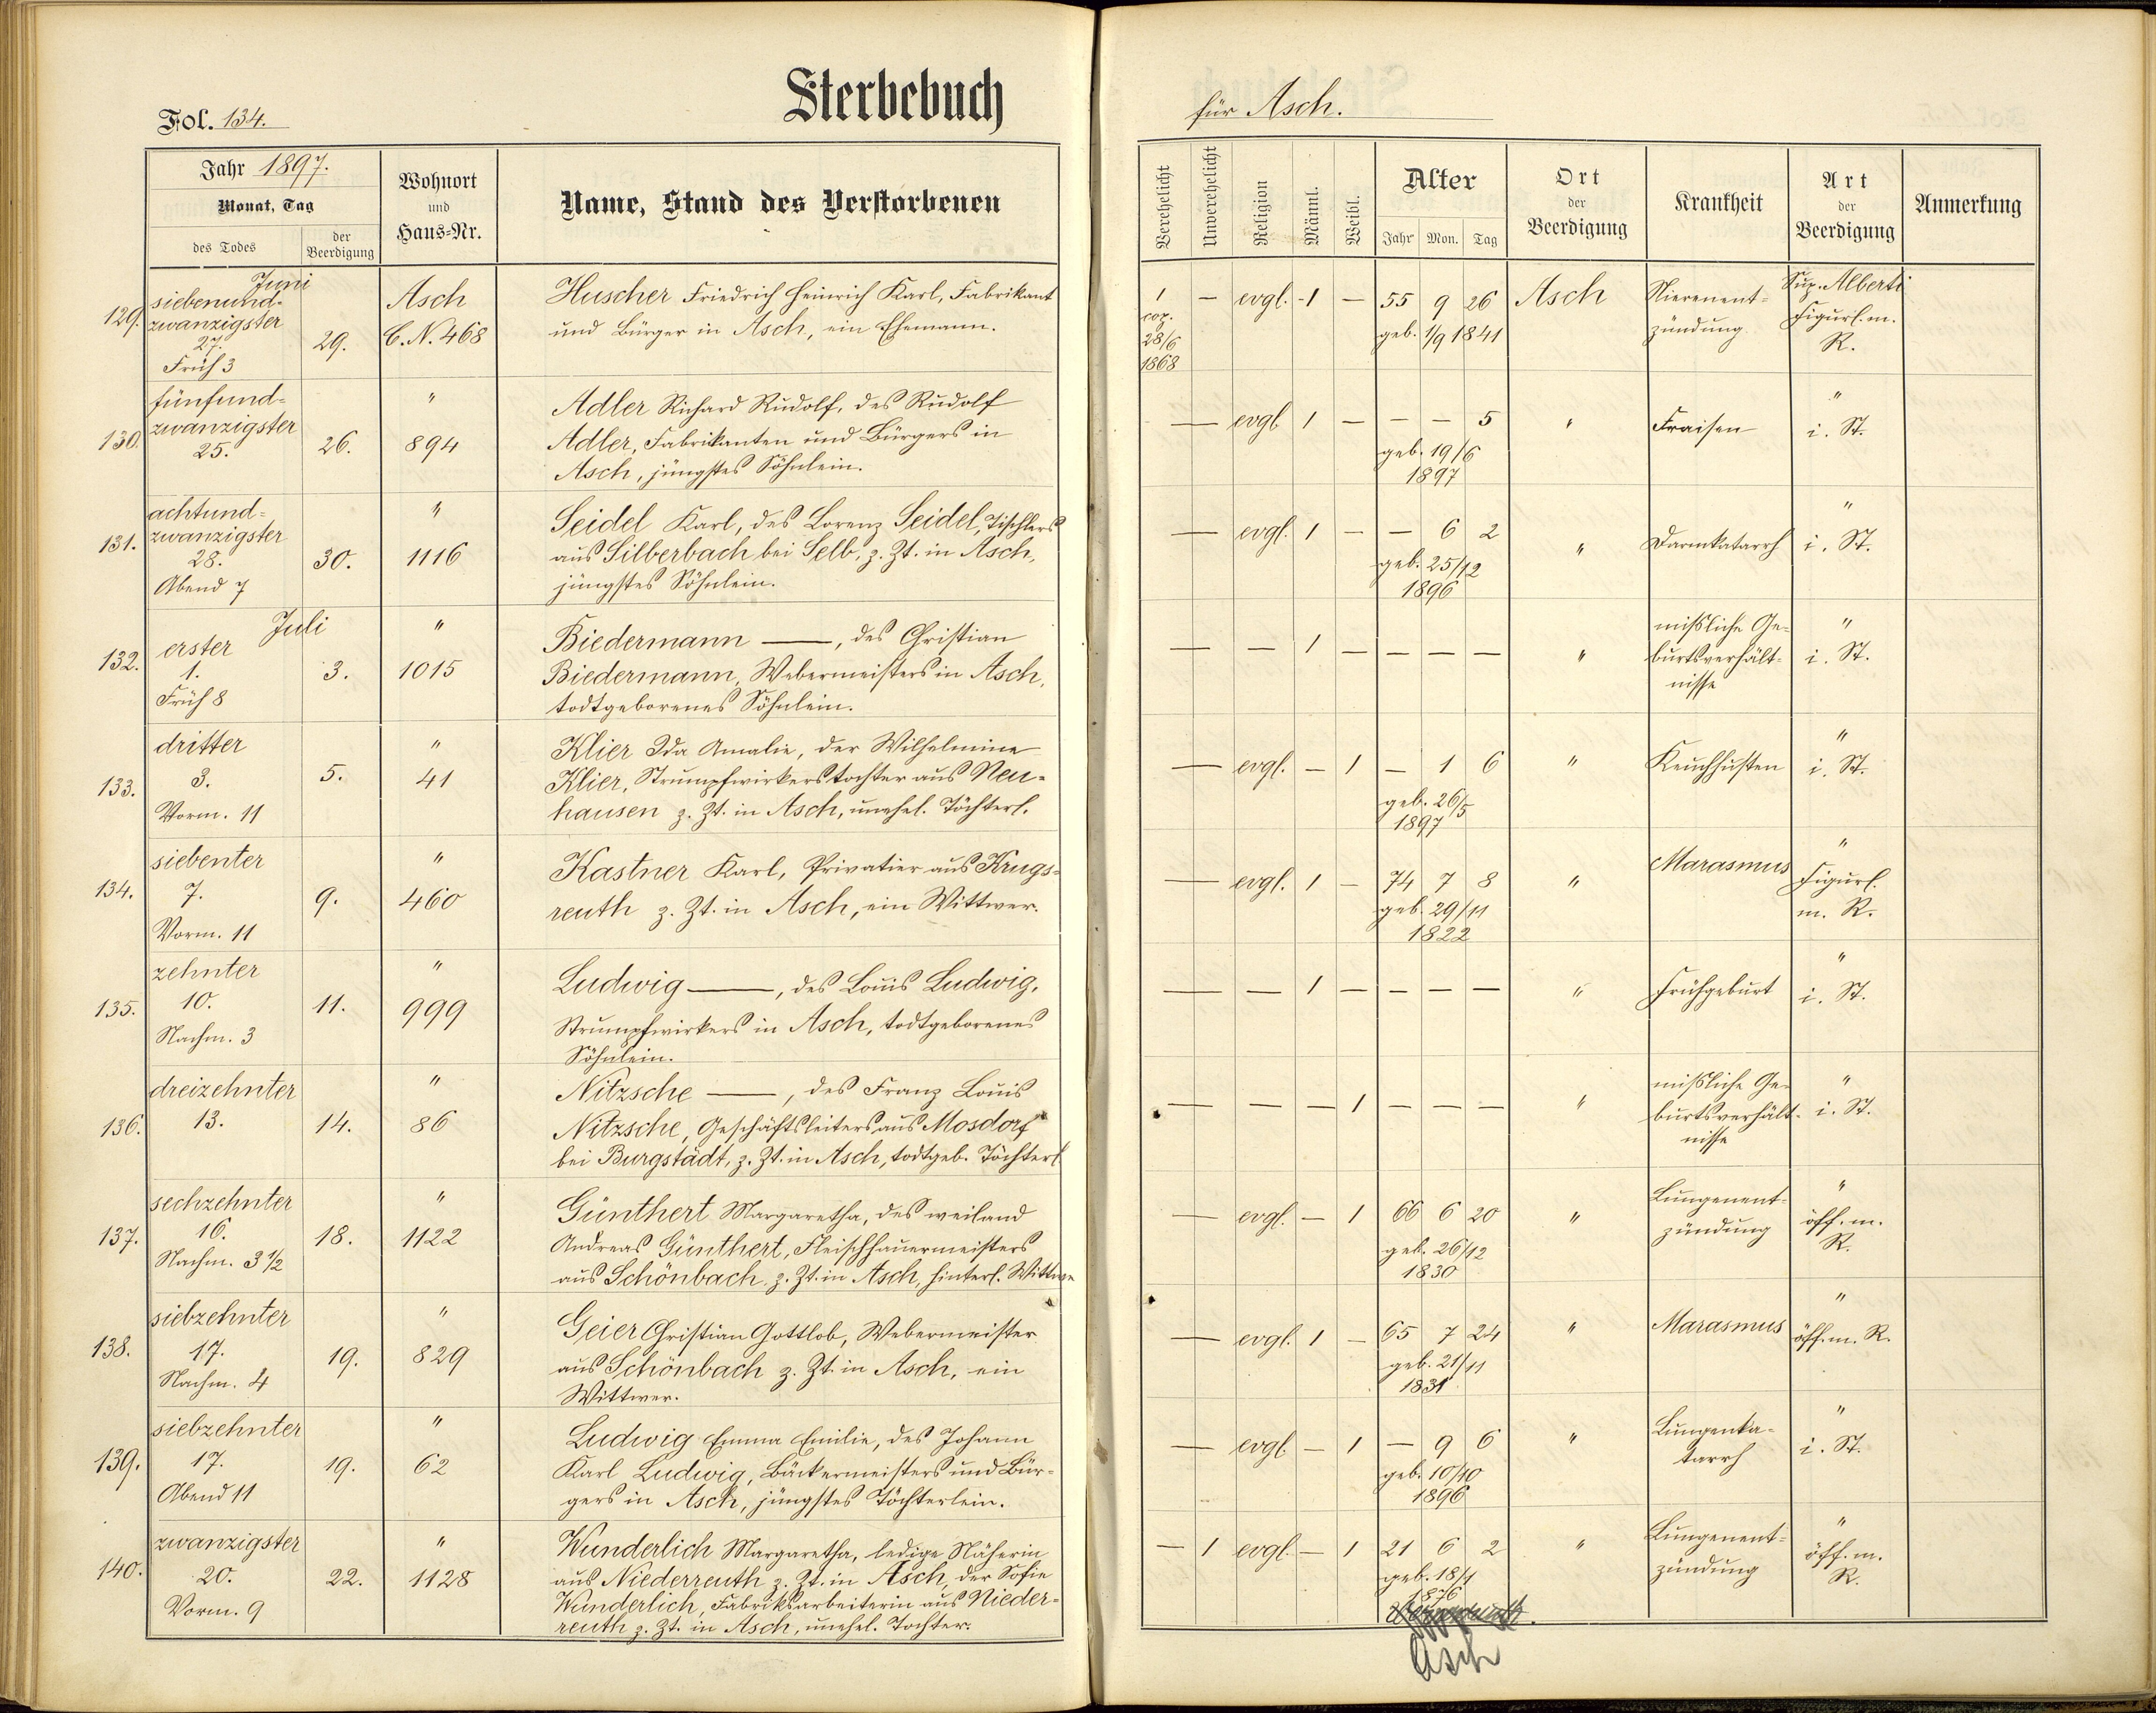 Sterbebuch
Fol. 134.
Jahr 1897.
Monat, Tag
des Todes
der Beerdigung
Wohnort und Haus-Nr.
Name, Stand des Verstorbenen
Juni
129.
siebenund-
zwanzigster
27.
Früh 3
29.
Asch
C.N. 468
Huscher Friedrich Heinrich Karl, Fabrikant
und Bürger in Asch, ein Ehemann.
130.
fünfund-
zwanzigster
25.
26.
"
894
Adler Richard Rudolf, des Rudolf
Adler, Fabrikanten und Bürgers in
Asch, jüngstes Söhnlein.
131.
achtund-
zwanzigster
28.
Abend 7
30.
"
1116
Seidel Karl, des Lorenz Seidel, Tischlers
aus Silberbach bei Selb, z. Zt. in Asch,
jüngstes Söhnlein.
Juli
132.
erster
1.
Früh 8
3.
"
1015
Biedermann —, des Christian
Biedermann, Webermeisters in Asch,
todtgeborenes Söhnlein.
133.
dritter
3.
Vorm. 11
5.
"
41
Klier Ida Amalie, der Wilhelmine
Klier, Strumpfwirkerstochter aus Neu-
hausen z. Zt. in Asch, unehel. Töchterl.
134.
siebenter
7.
Vorm. 11
9.
"
460
Kastner Karl, Privatier aus Krugs-
reuth z. Zt. in Asch, ein Wittwer.
135.
zehnter
10.
Nachm. 3
11.
"
999
Ludwig —, des Louis Ludwig,
Strumpfwirkers in Asch, todtgeborenes
Söhnlein.
136.
dreizehnter
13.
14.
"
86
Nitzsche —, des Franz Louis
Nitzsche, Geschäftsleiters aus Mosdorf
bei Burgstädt, z. Zt. in Asch, todtgeb. Töchterl.
137.
sechzehnter
16.
Nachm. 3 1/2
18.
"
1122
Günthert Margaretha, des weiland
Andreas Günthert, Fleischhauermeisters
aus Schönbach z. Zt. in Asch, hinterl. Wittwe
138.
siebzehnter
17.
Nachm. 4
19.
"
829
Geier Christian Gottlob, Webermeister
aus Schönbach z. Zt. in Asch, ein
Wittwer.
139.
siebzehnter
17.
Abend 11
19.
"
62
Ludwig Emma Emilie, des Johann
Karl Ludwig, Bäckermeisters und Bür-
gers in Asch, jüngstes Töchterlein.
140.
zwanzigster
20.
Vorm. 9
22.
"
1128
Wunderlich Margaretha, ledige Näherin
aus Niederreuth z. Zt. in Asch, der Sofie
Wunderlich, Fabriksarbeiterin aus Nieder-
reuth z. Zt. in Asch, unehel. Tochter.
für Asch.
Verehelicht
Unverehelicht
Religion
Männl.
Weibl.
Alter
Jahr Mon. Tag
Ort der Beerdigung
Krankheit
Art der Beerdigung
Anmerkung
1 — evgl. - 1 — 55 9 26 Asch
cop.
28/6
1868
geb. 1/9 1841
Nierenent-
zündung
Sup. Alberti
Figurl. m.
R.
— evgl. 1 — — — 5 "
geb. 19/6
1897
Fraisen
"
i. St.
— evgl. 1 — — 6 2 "
geb. 25/12
1896
Darmkatarrh
"
i. St.
— — 1 — — — — "
mißliche Ge-
burtsverhält-
nisse
"
i. St.
— evgl. — 1 — 1 6 "
geb. 26/5
1897
Keuchhusten
"
i. St.
— evgl. 1 — 74 7 8 "
geb. 29/11
1822
Marasmus
"
Figurl.
m. R.
— — 1 — — — — "
Frühgeburt
"
i. St.
— — — 1 — — — "
mißliche Ge-
burtsverhält-
nisse
"
i. St.
— evgl. — 1 66 6 20 "
geb. 26/12
1830
Lungenent-
zündung
"
öff. m.
R.
— evgl. 1 — 65 7 24 "
geb. 21/11
1831
Marasmus
"
öff. m. R.
— evgl. — 1 — 9 6 "
geb. 10/10
1896
Lungenka-
tarrh
"
i. St.
— 1 evgl. — 1 21 6 2 "
geb. 18/1
1876
Lungenent-
zündung
"
öff. m.
R.
Asch